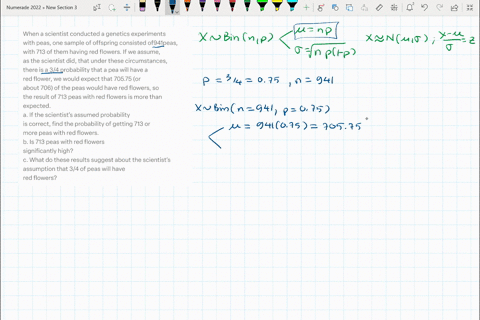 Numerade 2022 » New Section 3
When a scientist conducted a genetics experiments
with peas, one sample of offspring consisted of 941 peas,
with 713 of them having red flowers. If we assume,
as the scientist did, that under these circumstances,
there is a 3/4 probability that a pea will have a
red flower, we would expect that 705.75 (or
about 706) of the peas would have red flowers, so
the result of 713 peas with red flowers is more than
expected.
a. If the scientist's assumed probability
is correct, find the probability of getting 713 or
more peas with red flowers.
b. Is 713 peas with red flowers
significantly high?
c. What do these results suggest about the scientist's
assumption that 3/4 of peas will have
red flowers?
X~Bin(n,p)
μ=np
σ=√np(1-p)
X≈N(μ,σ), x-μ/σ=z
p=3/4=0.75, n=941
X~Bin(n=941, p=0.75)
μ=941(0.75)=705.75